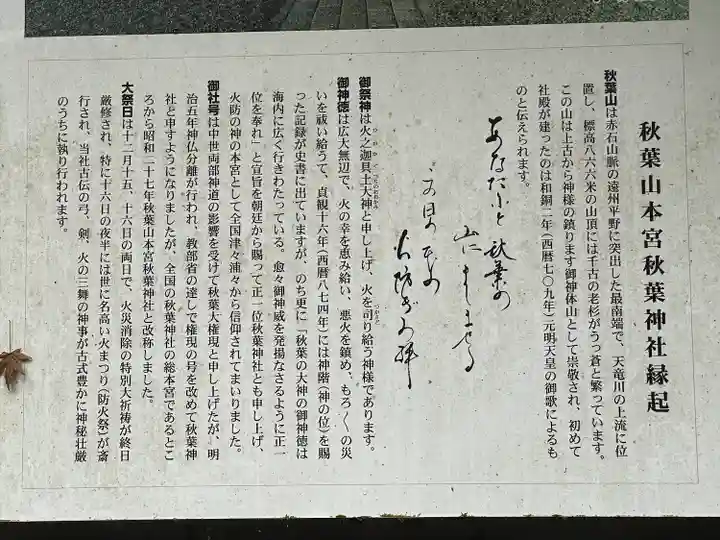 秋葉山本宮秋葉神社縁起
秋葉山は赤石山脈の遠州平野に突出した最南端で、天竜川の上流に位
置し、標高八六六米の山頂には千古の老杉がうっ蒼と繁っています。
この山は上古から神様の鎮ります御神体山として崇敬され、初めて
社殿が建ったのは和銅二年(西暦七〇九年)元明天皇の御歌によるも
のと伝えられます。
あなたふと秋葉の
山にまします
火防ぎの神
御祭神は火之迦具土大神と申し上げ、火を司り給う神様であります。
御神徳は広大無辺で、火の幸を恵み給い、悪火を鎮め、もろ〱の災
いを祓い給うて、貞観十六年(西暦八七四年)には神階(神の位)を賜
った記録が史書に出ていますが、のち更に「秋葉の大神の御神徳は
海内に広く行きわたっている。愈々御神威を発揚なさるように正一
位を奉れ」と宣旨を朝廷から賜って正一位秋葉神社とも申し上げ、
火防の神の本宮として全国津々浦々から信仰されてまいりました。
御社号は中世両部神道の影響を受けて秋葉大権現と申し上げたが、明
治五年神仏分離が行われ、教部省の達しで権現の号を改めて秋葉神
社と申すようになりましたが、全国の秋葉神社の総本宮であるとこ
ろから昭和二十七年秋葉山本宮秋葉神社と改称しました。
大祭日は十二月十五、十六日の両日で、火災消除の特別大祈祷が終日
厳修され、特に十六日の夜半には世に名高い火まつり(防火祭)が斎
行され、当社古伝の弓、剣、火の三舞の神事が古式豊かに神秘壮厳
のうちに執り行われます。